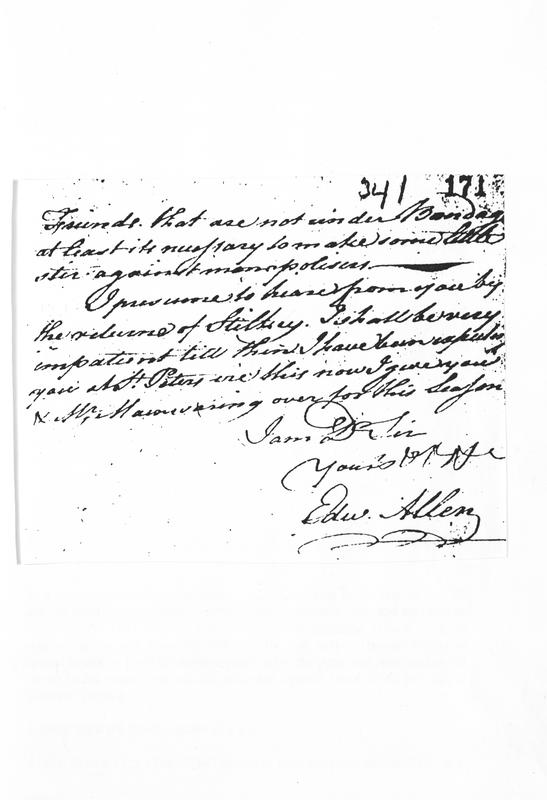 341 171
Friends. that are not under Bondag
at least its nessary to make some little
ster against monopolisers
I presume to heare from you by
the returne of Stiltsey. I shall be very
impatient till then I have been expectg
you at St. Peters ere this now I give you
& Mr. Mainwaring over for this Season
I am Dr Sir
Yours
Edw. Allen